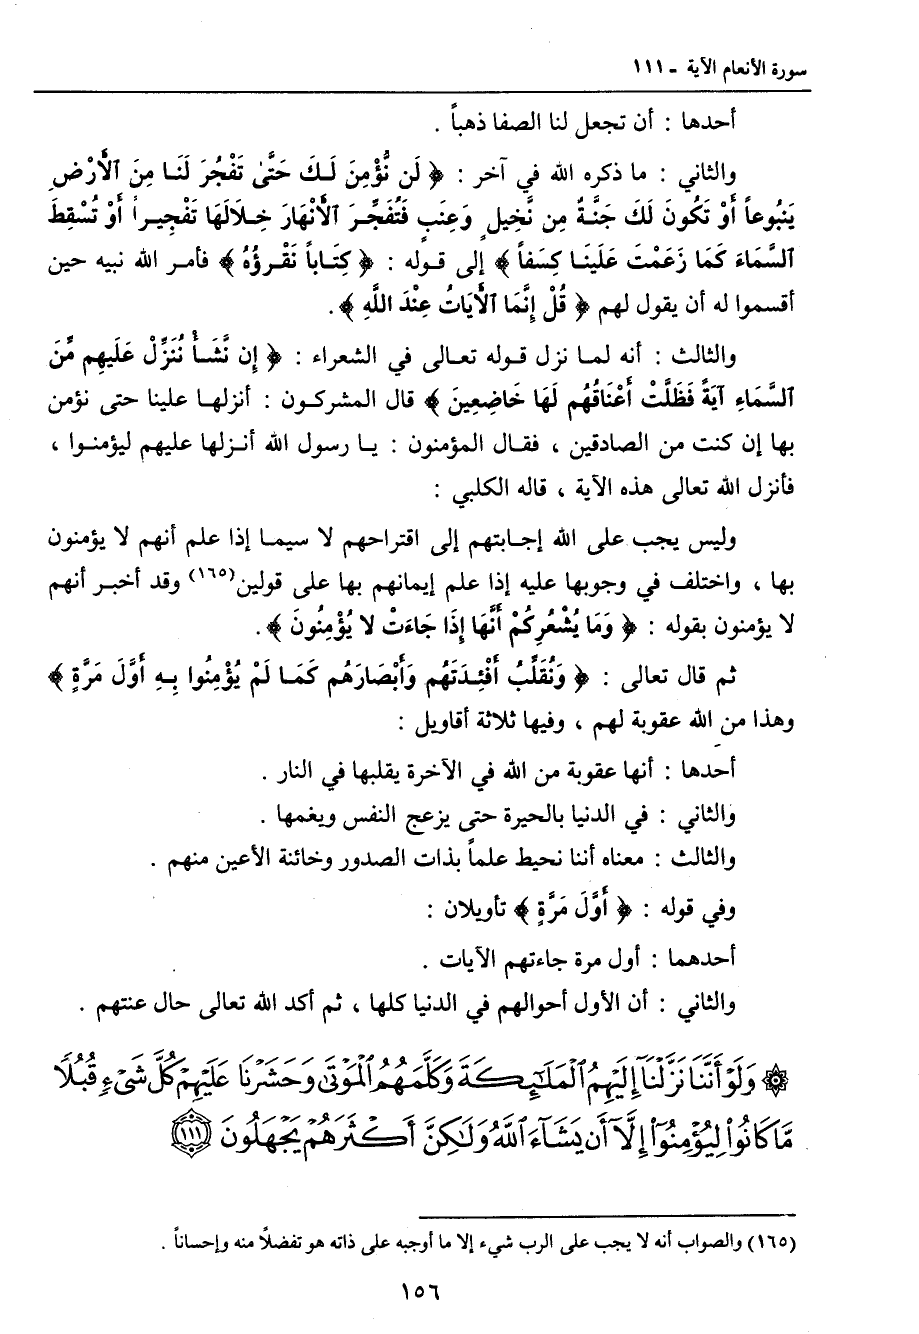 سورة الأنعام الآية - ١١١
أحدها : أن تجعل لنا الصفا ذهباً .
والثاني : ما ذكره الله في آخر : ﴿ لَن نُّؤْمِنَ لَـكَ حَتَّىٰ تَفْجُرَ لَنَـا مِنَ ٱلْأَرْضِ
يَنبُوعاً أَوْ تَكُونَ لَكَ جَنَّةٌ مِن نَّخِيلٍ وَعِنَبٍ فَتُفَجِّرَ الْأَنْهَارَ خِـلَالَهَا تَفْجِيراً أَوْ تُسْقِطَ
ٱلسَّمَاءَ كَمَا زَعَمْتَ عَلَينَـا كِسَفاً ﴾ إلى قوله : ﴿ كِتَـاباً نَقْـرَؤُهُ ﴾ فأمـر الله نبيه حين
أقسموا له أن يقول لهم ﴿ قُلْ إِنَّمَا الْأَيَاتُ عِنْدَ اللَّهِ ﴾ .
والثالث : أنه لمـا نزل قـوله تعـالى في الشعراء : ﴿ إِن نَّشَـأْ نُنَزِّلْ عَلَيهِم مِّنَ
ٱلسَّمَاءِ آيَةً فَظَلَّتْ أَعْنَاقُهُم لَهَا خَاضِعِينَ ﴾ قال المشركـون : أنزلهـا علينا حتى نؤمن
بها إن كنت من الصادقين ، فقـال المؤمنون : يـا رسول الله أنـزلها عليهم ليؤمنـوا ،
فأنزل الله تعالى هذه الآية ، قاله الكلبي :
وليس يجب على الله إجـابتهم إلى اقتراحهم لا سيمـا إذا علم أنهم لا يؤمنون
بها ، واختلف في وجوبها عليه إذا علم إيمانهم بها على قولين(١٦٥) وقد أخبـر أنهم
لا يؤمنون بقوله : ﴿ وَمَا يُشْعُرِكُمْ أَنَّهَا إِذَا جَاءَتْ لا يُؤْمِنُونَ ﴾ .
ثم قال تعالى : ﴿ وَنُقَلِّبُ أَفْئِـدَتَهُم وَأَبْصَارَهُم كَمَـا لَمْ يُؤْمِنُوا بِـهِ أَوَّلَ مَرَّةٍ ﴾
وهذا من الله عقوبة لهم ، وفيها ثلاثة أقاويل :
أحدها : أنها عقوبة من الله في الآخرة يقلبها في النار .
والثاني : في الدنيا بالحيرة حتى يزعج النفس ويغمها .
والثالث : معناه أننا نحيط علماً بذات الصدور وخائنة الأعين منهم .
وفي قوله : ﴿ أَوَّلَ مَرَّةٍ ﴾ تأويلان :
أحدهما : أول مرة جاءتهم الآيات .
والثاني : أن الأول أحوالهم في الدنيا كلها ، ثم أكد الله تعالى حال عنتهم .
۞ وَلَوْ أَنَّنَا نَزَّلْنَآ إِلَيْهِمُ ٱلْمَلَٰٓئِكَةَ وَكَلَّمَهُمُ ٱلْمَوْتَىٰ وَحَشَرْنَا عَلَيْهِمْ كُلَّ شَىْءٍ قُبُلًا
مَّا كَانُوا۟ لِيُؤْمِنُوٓا۟ إِلَّآ أَن يَشَآءَ ٱللَّهُ وَلَٰكِنَّ أَكْثَرَهُمْ يَجْهَلُونَ ﴿١١١﴾
(١٦٥) والصواب أنه لا يجب على الرب شيء إلا ما أوجبه على ذاته هو تفضلاً منه وإحساناً .
١٥٦